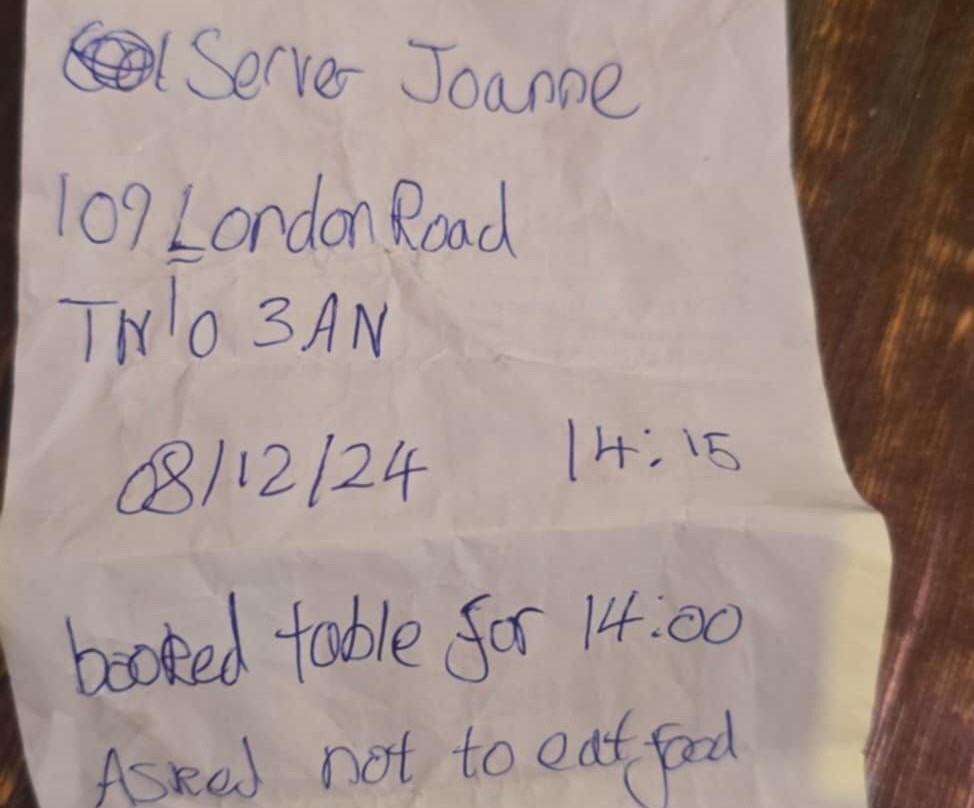 Server Joanne
109 London Road
TN10 3AN
08/12/24 14:15
booked table for 14:00
Asked not to eat food